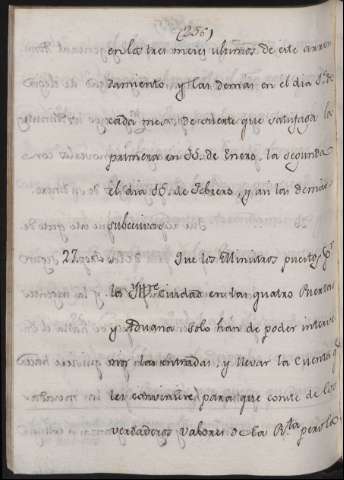 (256)
en los tres meses ultimos de este arren
damiento, y las demas en el dia 1.º de
cada mes, de suerte que satisfaga la
primera en 15. de Enero, la segunda
el dia 16. de Febrero, y an las demas
subcesivas.
27. Que los Ministros puestos p.r
la Ill.e Ciudad en las quatro Puertas
y Aduana solo han de poder interve
nir las entradas, y llevar la Cuenta q.
les conviniere, para que conste de los
verdaderos valores de la R.ta pero la